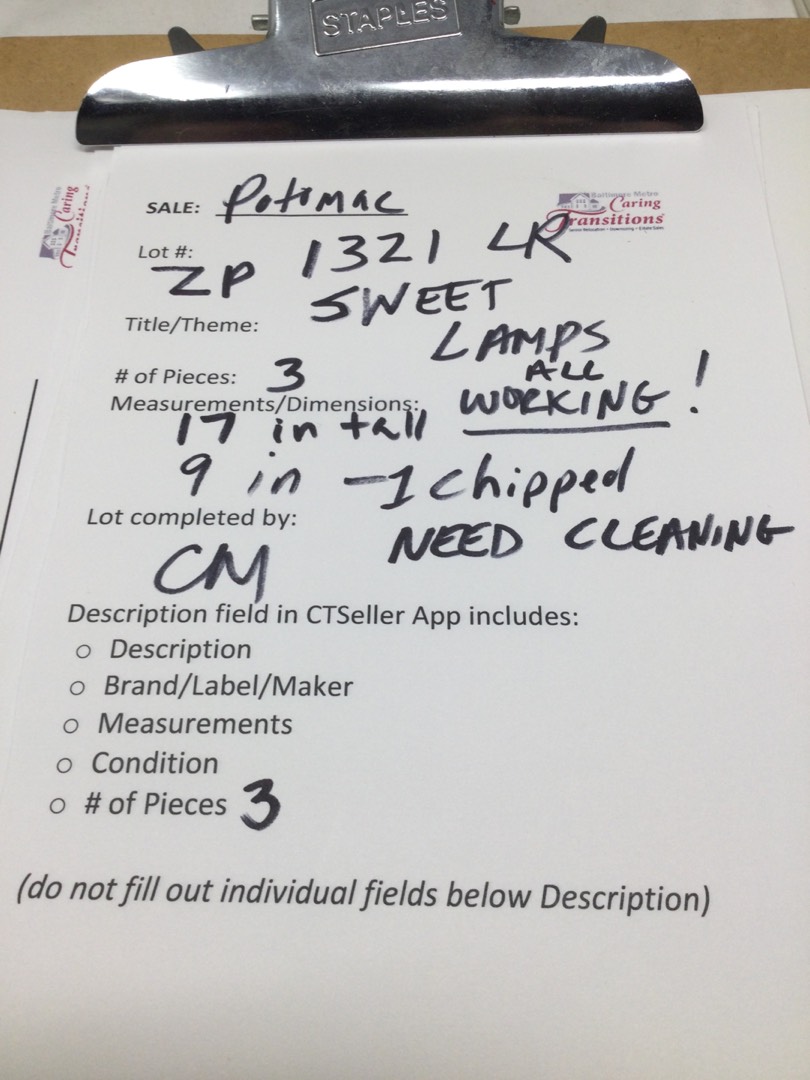 STAPLES
SALE: Potomac
Baltimore Metro
Caring
Transitions
Caring
Transitions
Lot #: 1321 LR
ZP
SWEET
Title/Theme:
LAMPS
# of Pieces: 3
ALL
Measurements/Dimensions: WORKING!
17 in tall
9 in -1 chipped
Lot completed by:
NEED CLEANING
CM
Description field in CTSeller App includes:
o Description
o Brand/Label/Maker
o Measurements
o Condition
o # of Pieces 3
(do not fill out individual fields below Description)